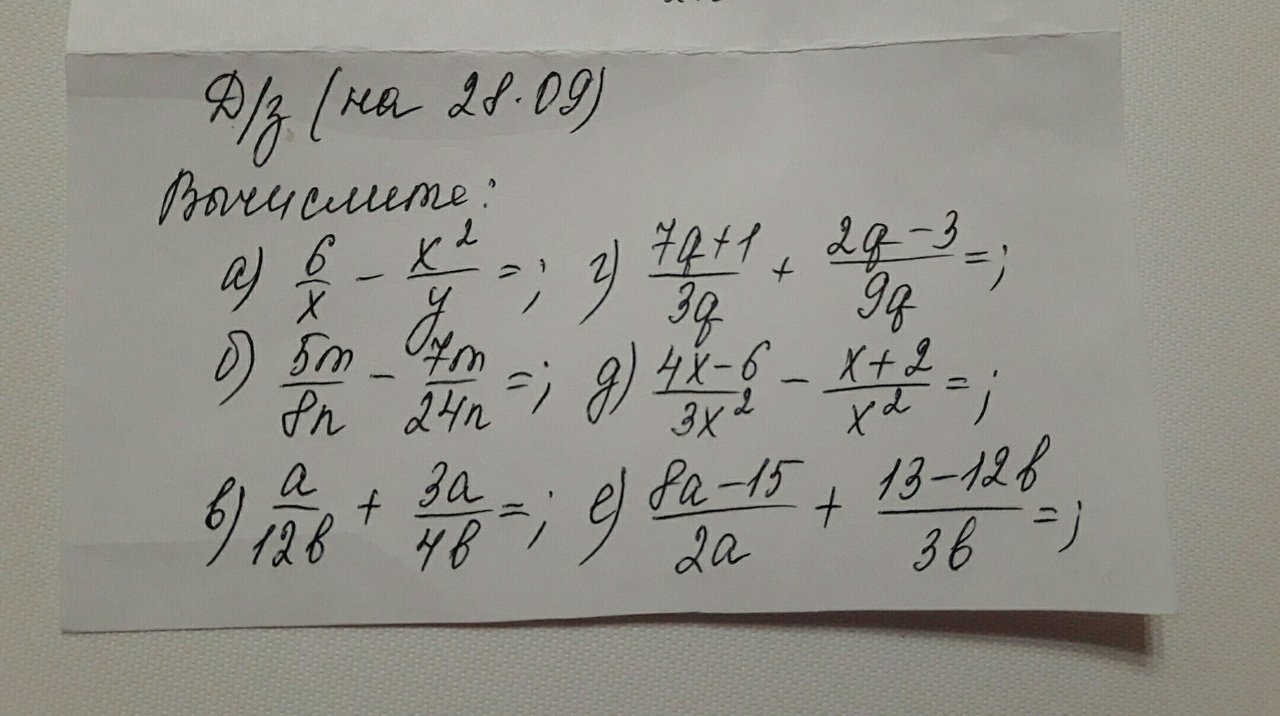 Д/з (на 28.09)
Вычислите:
а) 6/x - x²/y =; г) 7q+1/3q + 2q-3/9q =;
б) 5m/8n - 7m/24n =; д) 4x-6/3x² - x+2/x² =;
в) a/12b + 3a/4b =; е) 8a-15/2a + 13-12b/3b =;